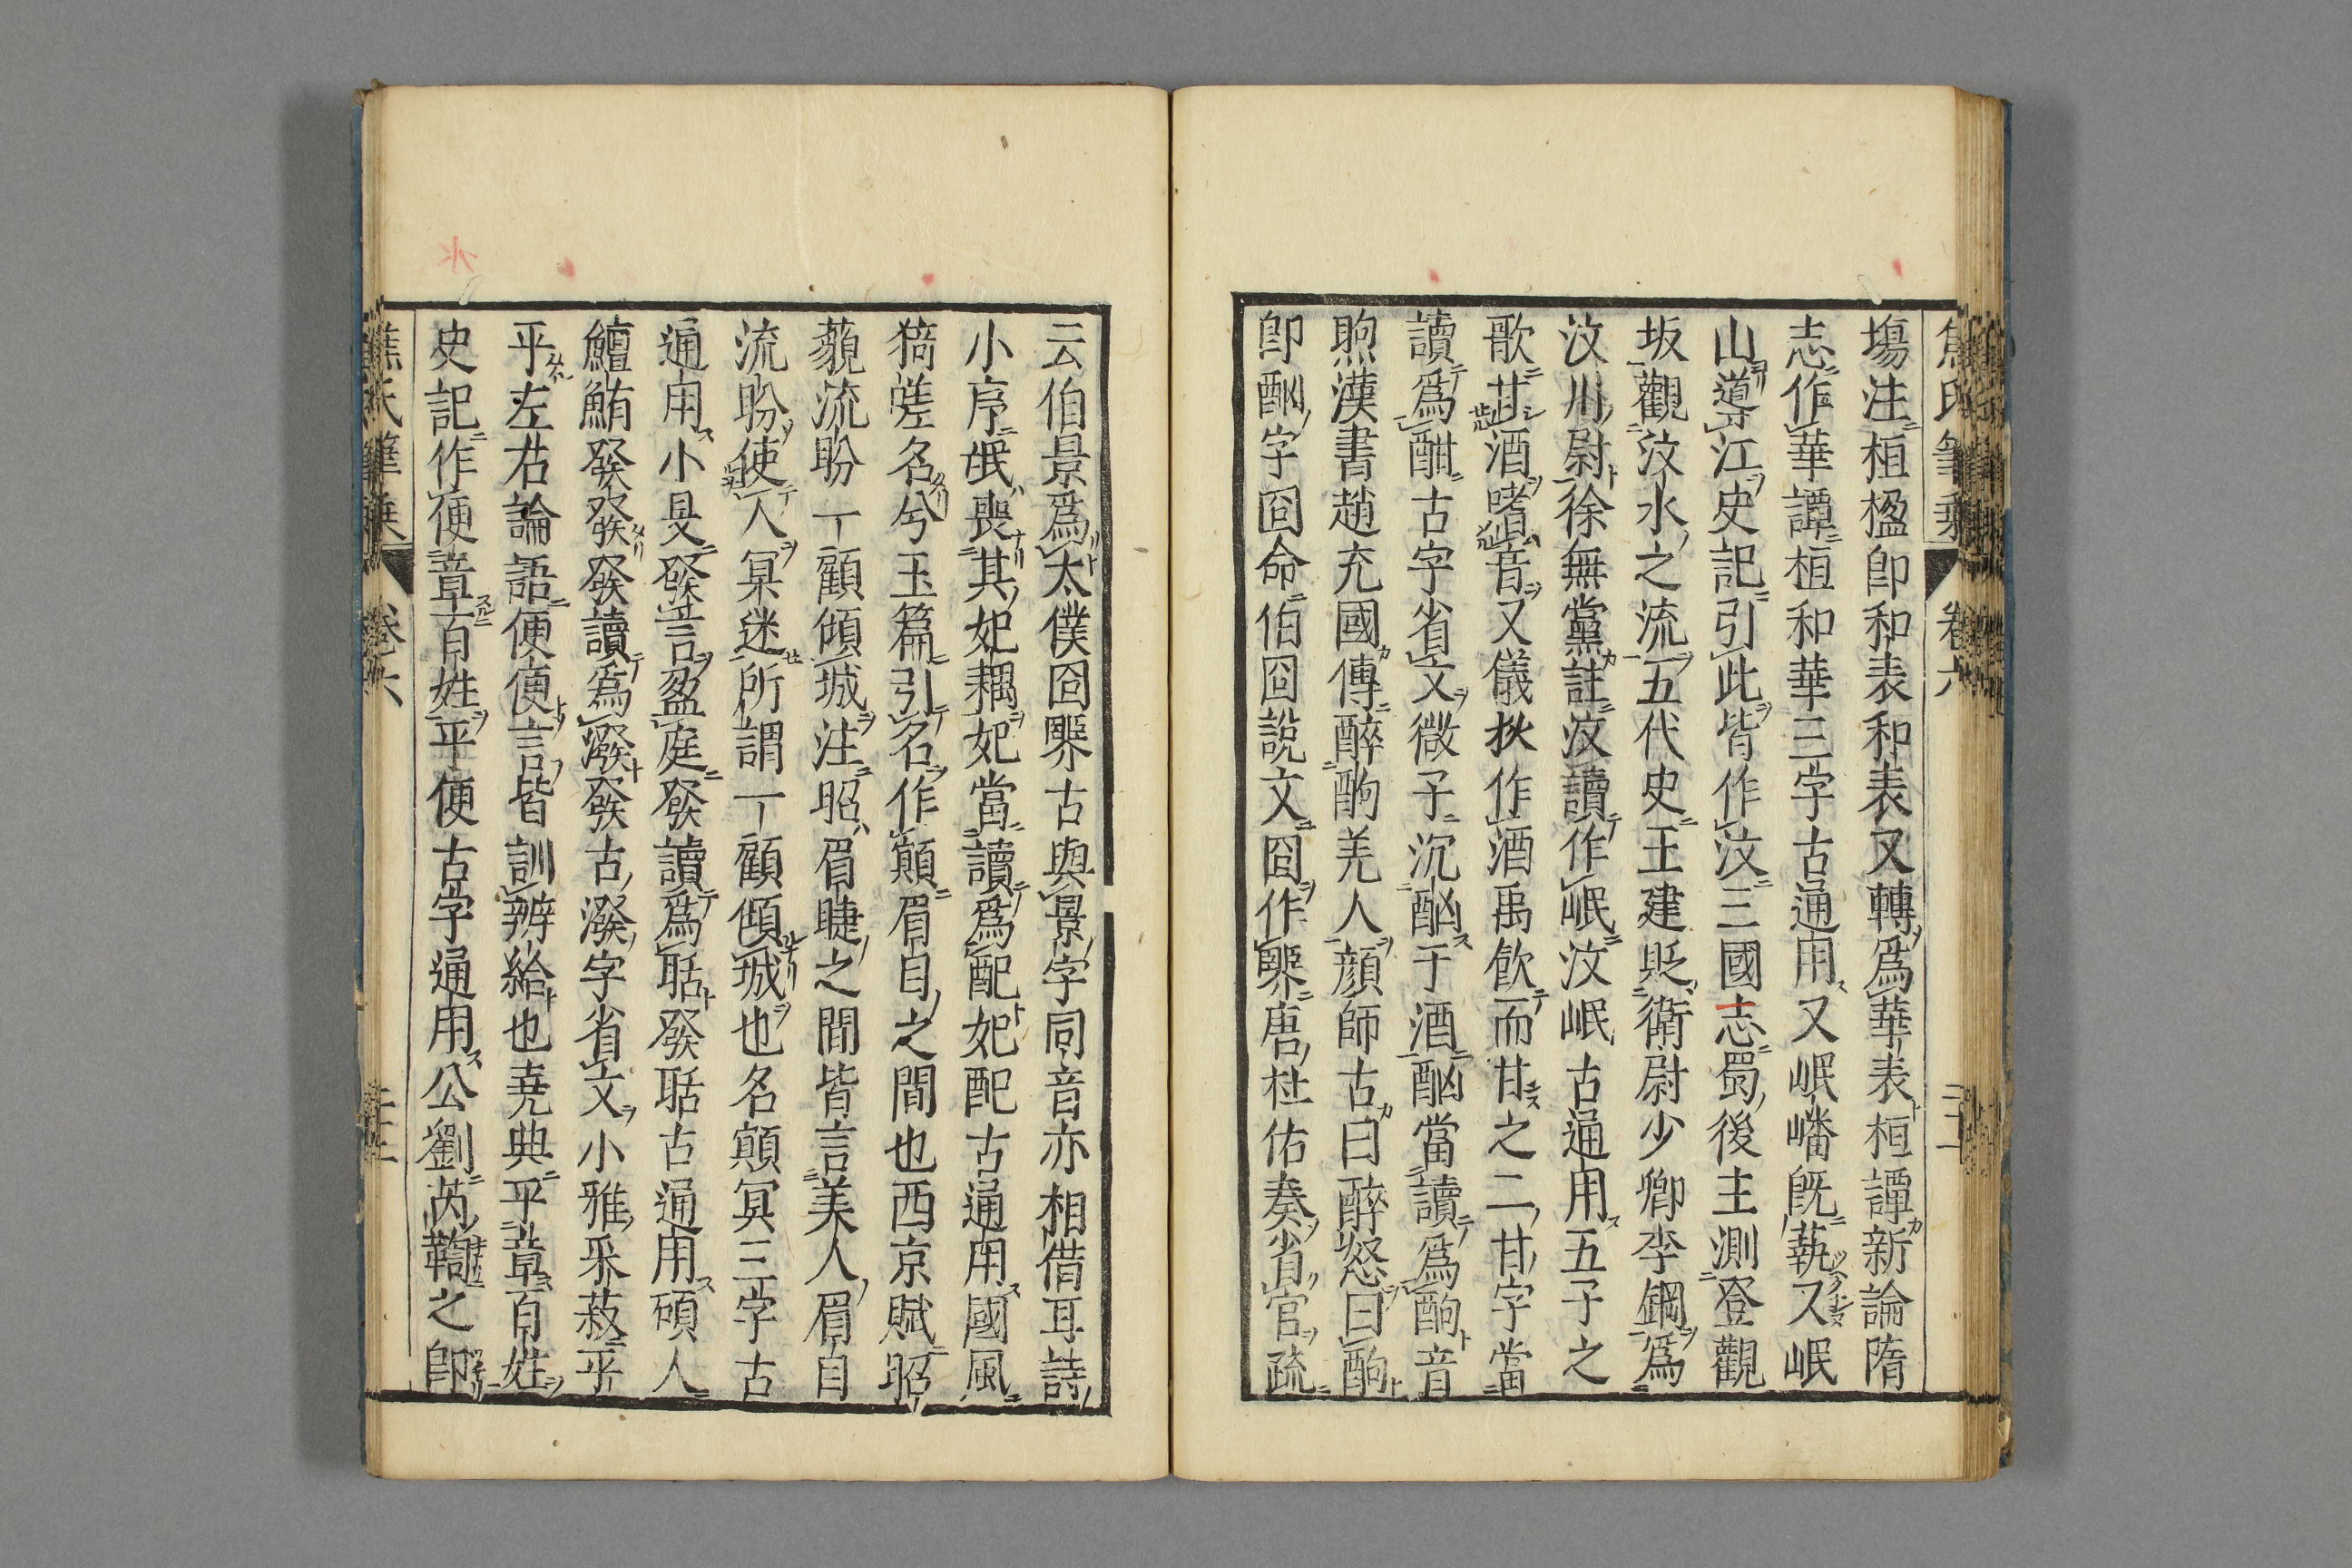 焦氏筆乗 卷六
塲注桓楹卽和表和表又轉爲華表桓譚新論隋
志作華譚桓和華三字古通用又岷嶓旣蓺又岷
山導江史記引此皆作汶三國志蜀後主測登觀
坂觀汶水之流五代史王建貶衛尉少卿李鋼爲
汶川尉徐無黨註汶讀作岷汶岷古通用五子之
歌甘酒嗜音又儀狄作酒禹飲而甘之二甘字當
讀爲酣古字省文微子沉酗于酒酗當讀爲酗音
煦漢書趙充國傳醉酗羌人顔師古曰醉怒曰酗
卽酗字囧命伯囧說文囧作臩唐杜佑奏省官疏
云伯景爲太僕囧臩古與景字同音亦相借耳詩
小序氓喪其妃耦妃當讀爲配妃配古通用國風
猗嗟名兮玉篇引名作顛眉目之間也西京賦昭
藐流盼一顧傾城注昭眉睫之間皆言美人眉目
流盼使人冥迷所謂一顧傾城也名顛冥三字古
通用小旻發言盈庭發讀爲聒發聒古通用碩人
鱣鮪發發發讀爲潑發古潑字省文小雅采菽平
平左右論語便便言皆訓辨給也堯典平章百姓
史記作便章百姓平便古字通用公劉芮鞫之卽
焦氏筆乗 卷六